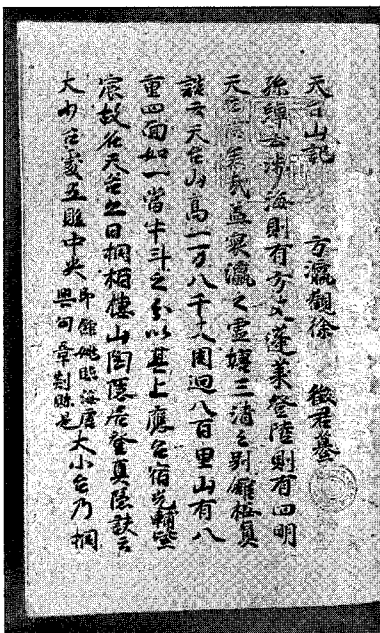 天台山記 方瀛觀徐 徵君纂
孫綽云涉海則有方丈蓬萊登陸則有四明
天台信矣哉蓋寰瀛之靈墟三清之別館按真
誥云天台山高一万八千丈周迴八百里山有八
重四面如一當牛斗之分以其上應台宿光輔紫
宸故名天台又曰桐栢棲山陶隱居登真隱訣云
大小台處五縣中央 即餘姚臨海唐興句章剡縣是 大小台乃桐